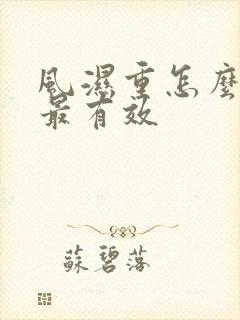 風濕重怎麼
最有效
蘇碧落